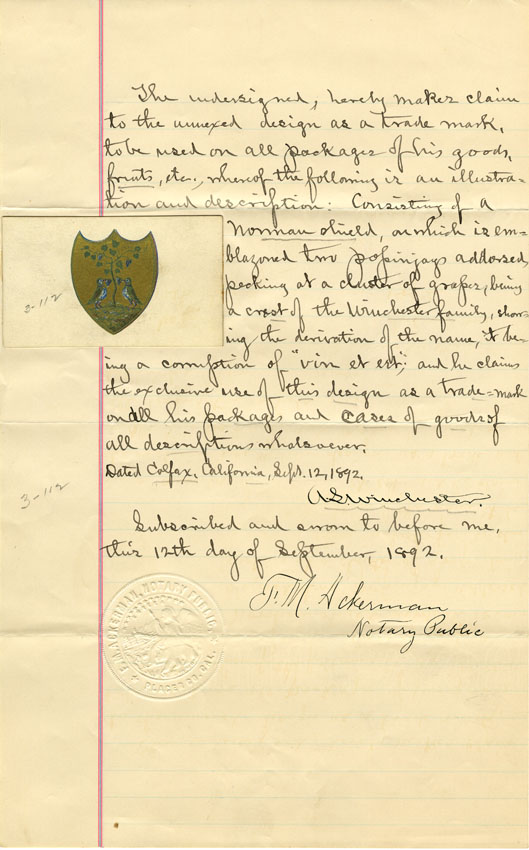 The undersigned, hereby makes claim
to the annexed design as a trade mark,
to be used on all packages of his goods,
fruits, etc., whereof the following is an illustra-
tion and description: Consisting of a
Norman shield, on which is em-
blazoned two popinjays addorsed,
pecking at a cluster of grapes, being
a crest of the Winchester family, show-
ing the derivation of the name, it be-
ing a corruption of "vin et est"; and he claims
the exclusive use of this design as a trade-mark
on all his packages and cases of goods of
all descriptions whatsoever.
Dated Colfax, California, Sept. 12, 1892.
A.S. Winchester.
Subscribed and sworn to before me,
this 12th day of September, 1892.
F. M. Ackerman
Notary Public
3-112
3-112
ACKERMAN, NOTARY PUBLIC
PLACER CO. CAL.